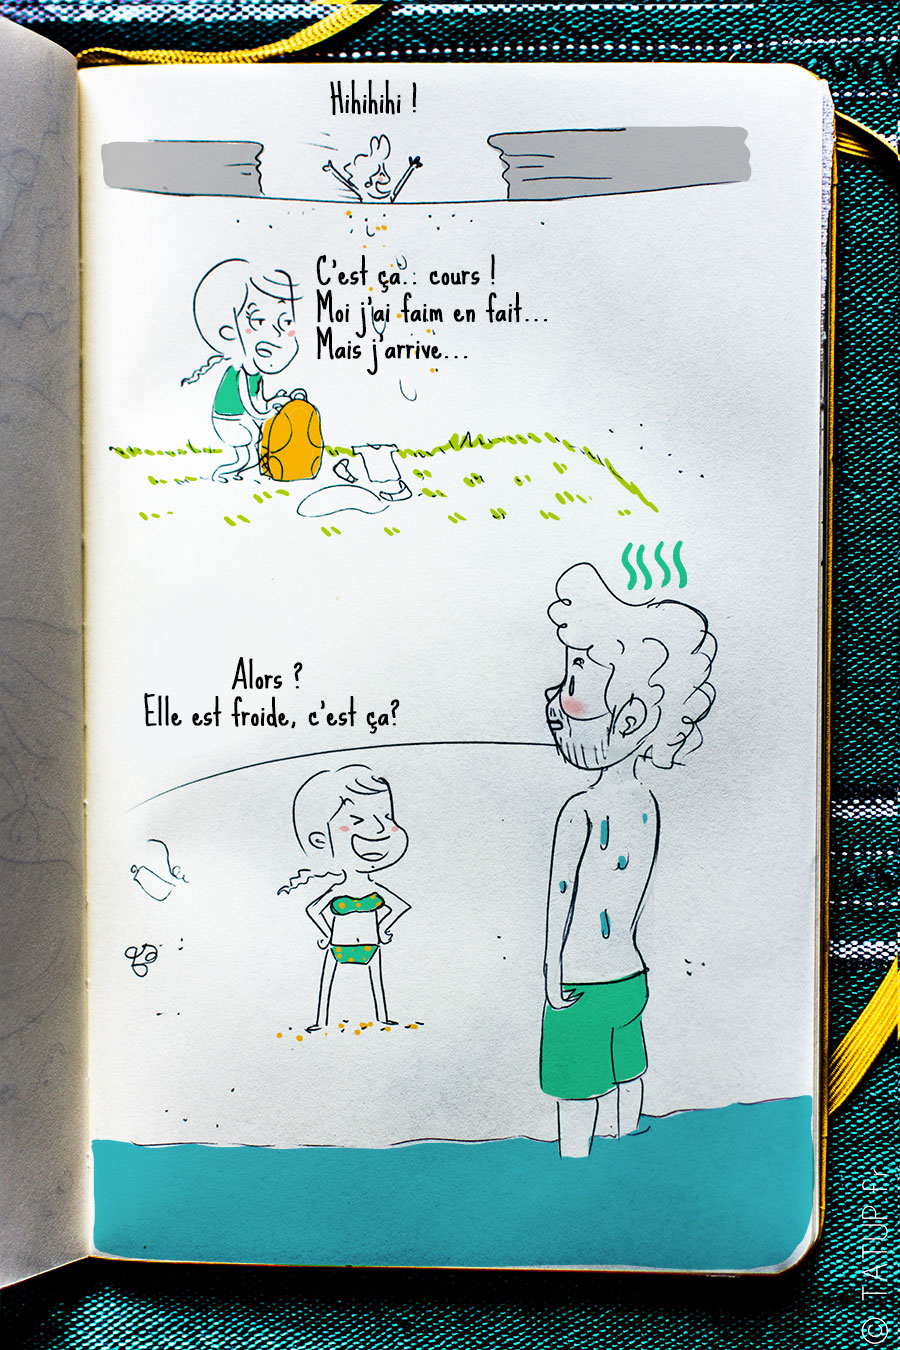 Hihihihi !
C'est ça.. cours !
Moi j'ai faim en fait...
Mais j'arrive...
Alors ?
Elle est froide, c'est ça?
© TATUP.fr